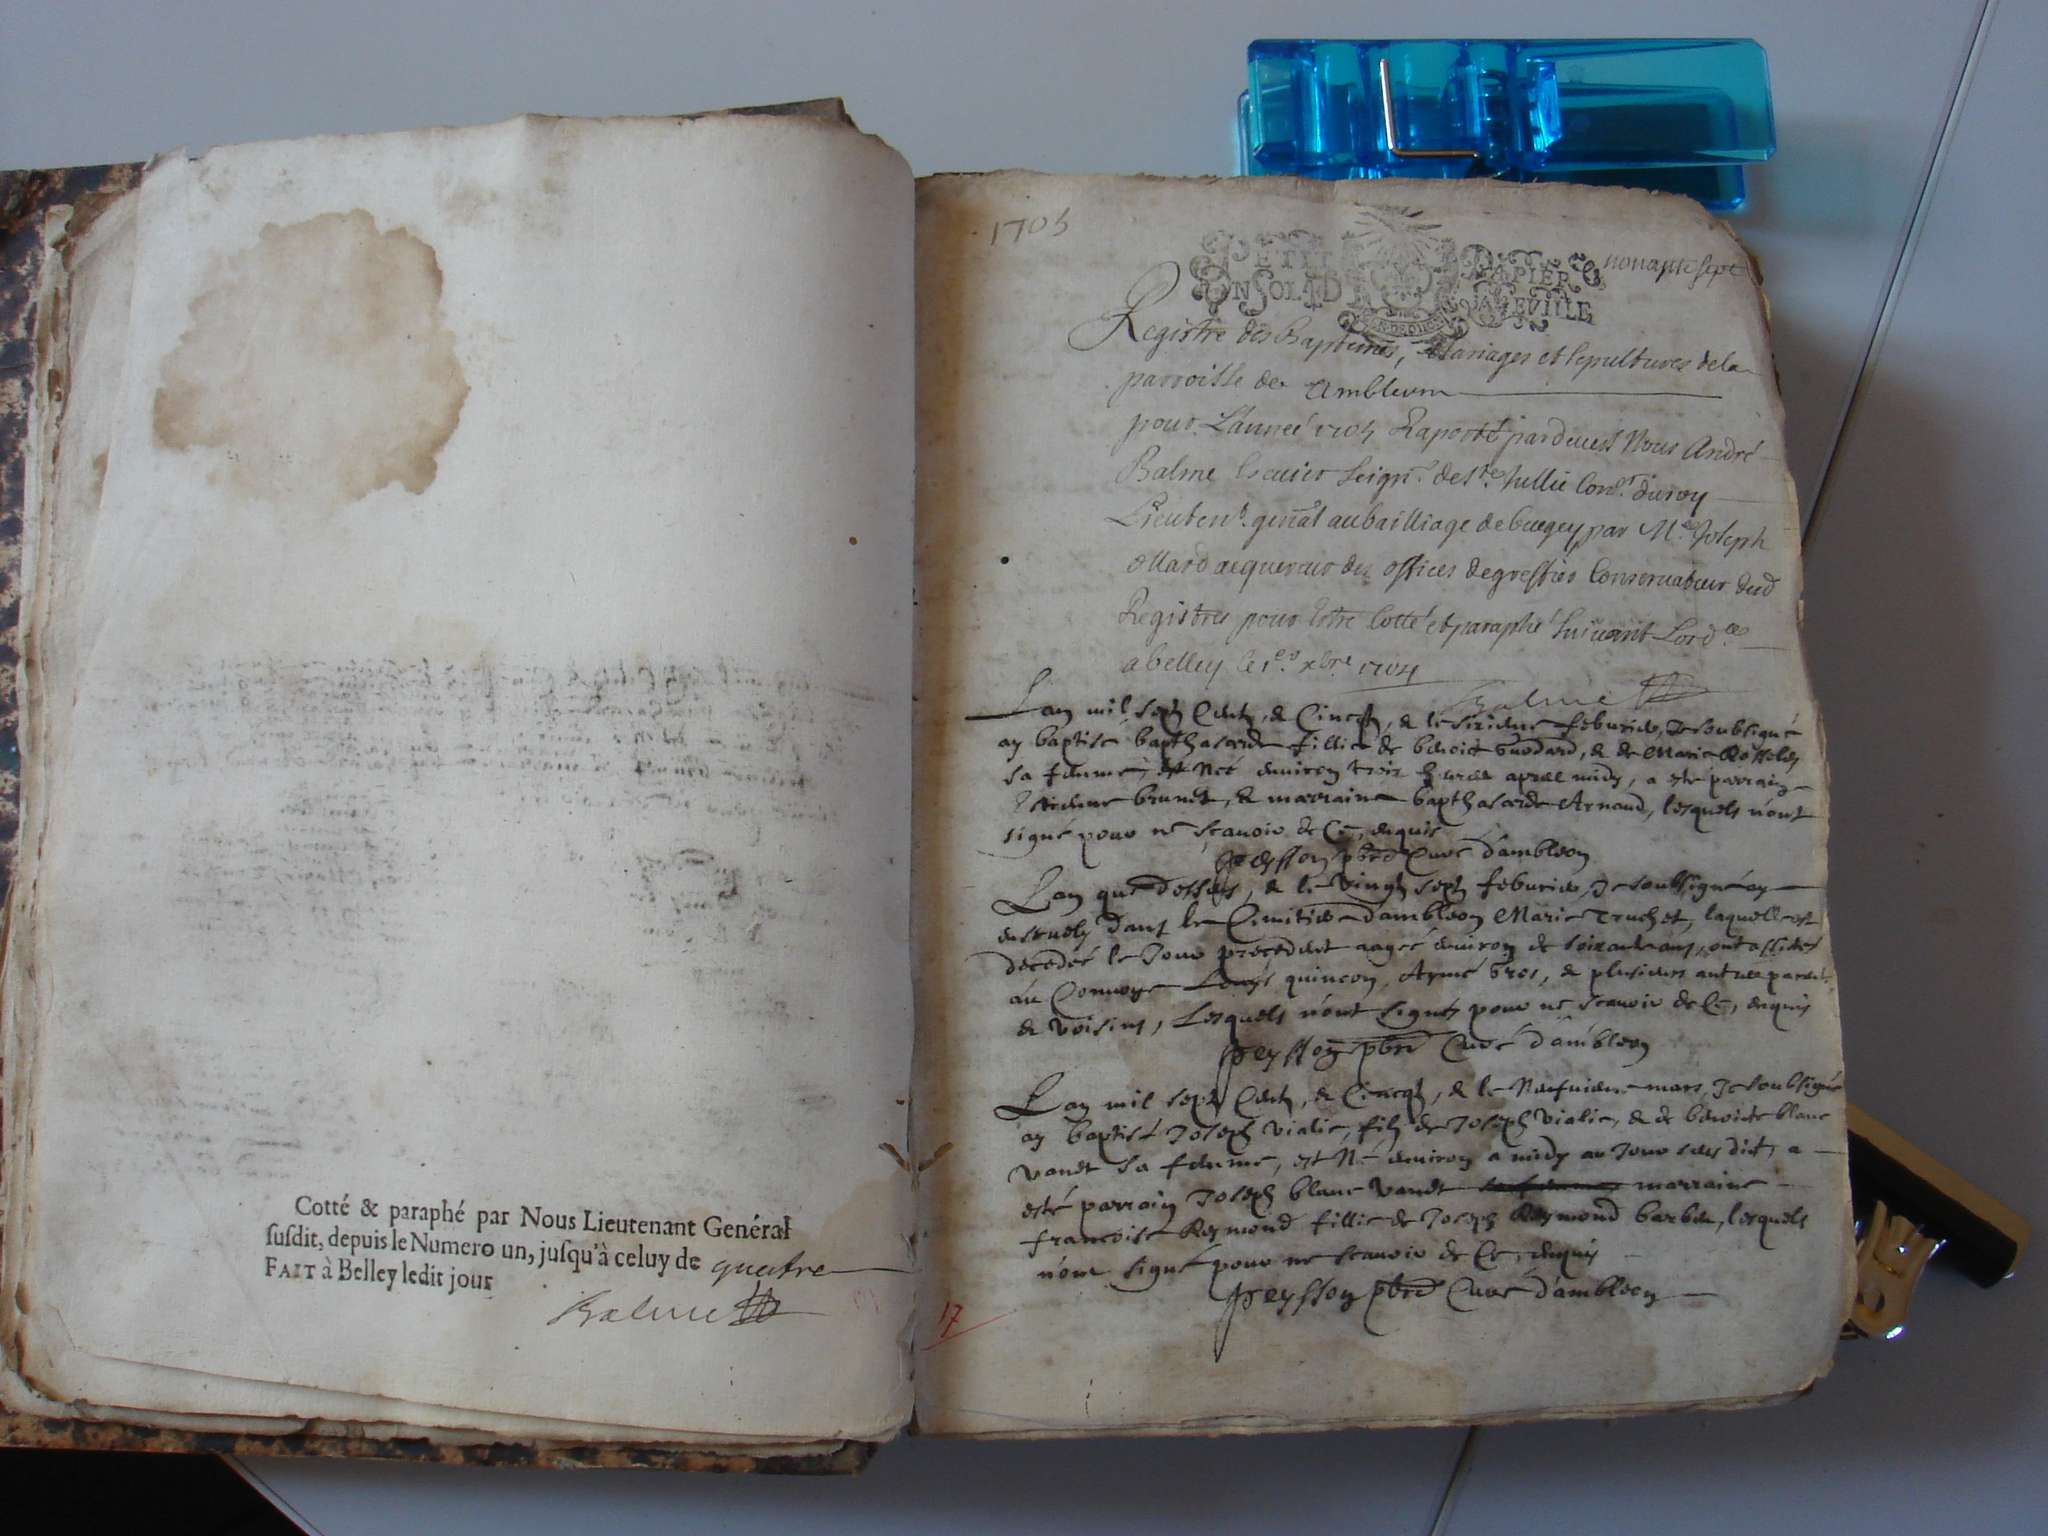 Cotté & paraphé par Nous Lieutenant Genéral
susdit, depuis le Numero un, jusqu'à celuy de quatre
FAIT à Belley ledit jour
Balme
1705
nonante sept
PETIT PAPIER
UN SOL 
Registre des Baptemes, Mariages et sepultures de la
parroisse de Ambleon
pour L'année 1705 Raporté pardevest Nous André
Balme Escuier Seigr. de Ste. Jullie Coner. du roy
Lieutent. genal au bailliage de bugey par Me. Joseph
ollard acquereur des offices de greffier Conservateur desd
Registres pour Estre Cotté et paraphé suivant Lordce
a belley le 1er. xbre 1704
Balme
Lan mil sept Cent, & Cincq, & le sixieme feburier, Je soubsigné
ay baptise bapthasarde fillie de benoict, & de Marie
sa femme, est Neé environ trois heures apres midy, a esté parrain
Estienne brunet, & marraine bapthasarde Arnaud, lesquels n'ont
signé pour ne scavoir de Ce, enquis
Peysson pbre Curé d'ambleon
Lan que dessus, & le vingt sept feburier, Je soubsigné ay
ensevely dans le Cimitiere d'ambleon Marie Truchet, laquelle est
decedeé le Jour precedent aageé environ de soixante ans, ont assistes
au Convoye Louys quincon, Aymé bros, & plusieurs autres parents
& voisins, Lesquels n'ont signes pour ne scavoir de Ce, enquis
Peysson pbre Curé d'ambleon
Lan mil sept Cent, & Cincq, & le Neufvieme mars, Je soubsigné
ay baptisé Joseph vialie, fils de Joseph vialie, & de benoicte blanc
vanet sa femme, est Né environ a midy au Jour sus dict, a
esté parrain Joseph blanc vanet marraine
francoise Reymond fillie de Joseph Reymond barbier, lesquels
n'ont signé pour ne scavoir de Ce, enquis
Peysson pbre Curé d'ambleon
17